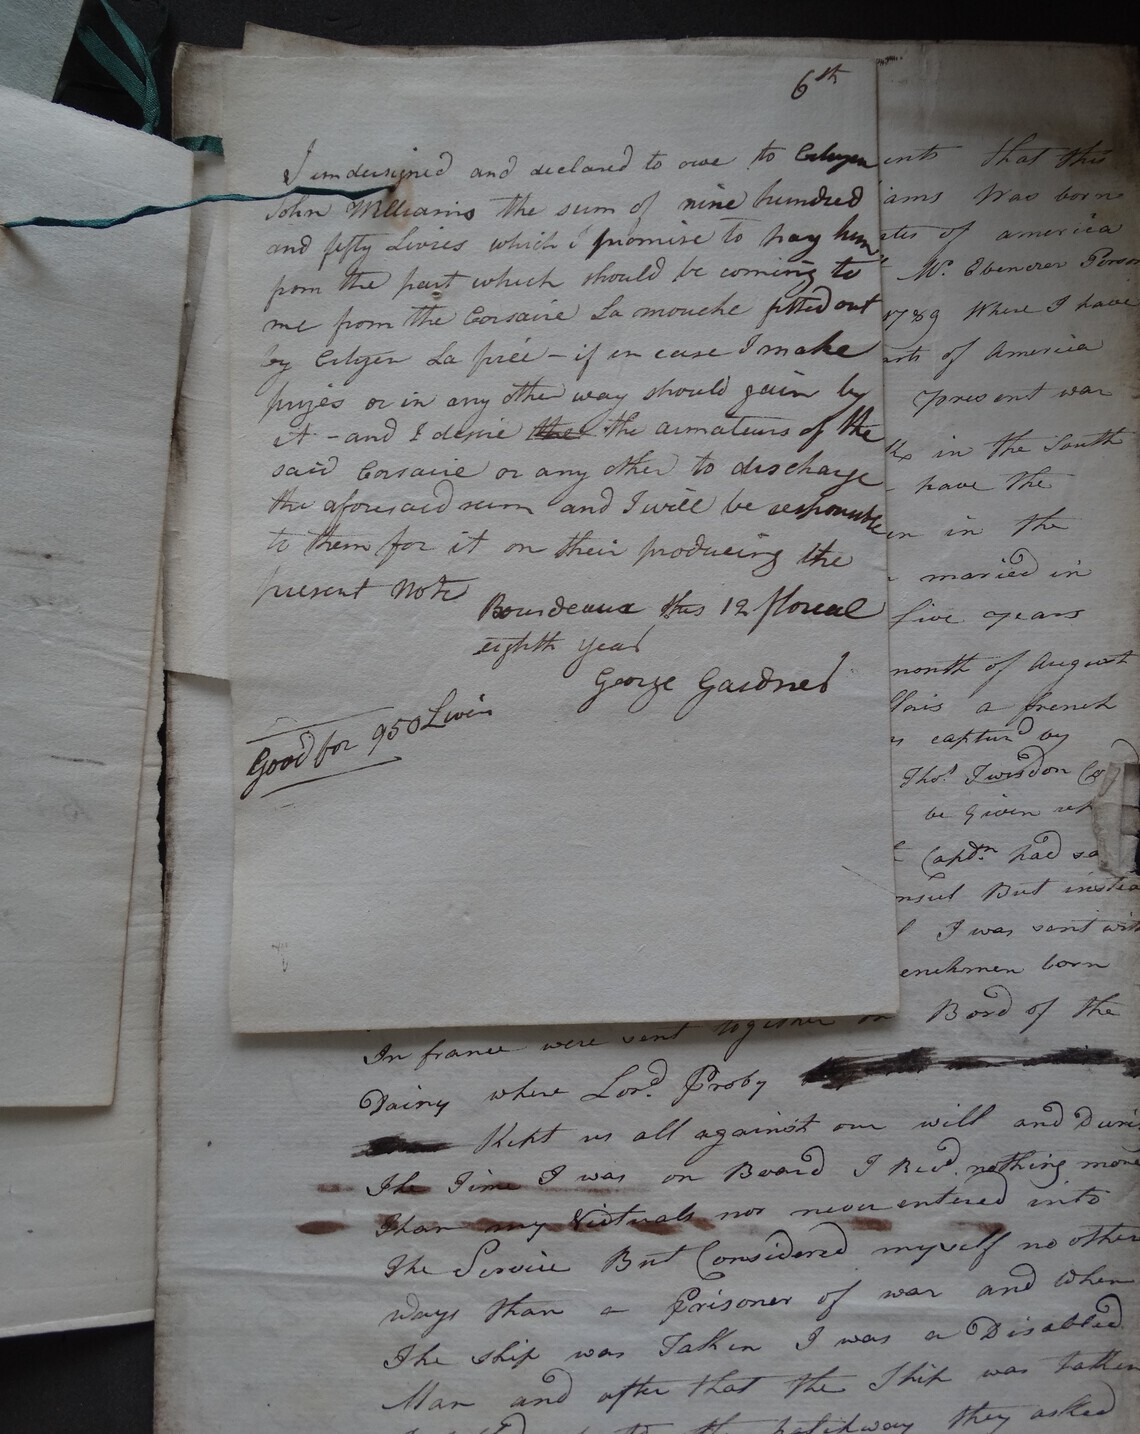 6th
I undersigned and declared to owe to Citizen
John Williams the sum of nine hundred
and fifty Livres which I promise to pay him
from the part which should be coming to
me from the Corsaire La mouche fitted out
by Citizen La freé - if in case I make
prizes or in any other way should gain by
it - and I desire the the armateurs of the
said Corsaire or any other to discharge
the aforesaid sum and I will be responsible
to them for it on their producing the
present Note
Bourdeaux this 12 floreal
eighth year
George Gardner
Good for 950 Livres
ents that this
iams Was born
ates of america
Mr. Ebenezer
1789 Where I have
arts of America
present war
in the South
have the
en in the
maried in
five years
month of August
a french
s capturd by
Thos. Twisdon
be Given up
Captn. had sa
nsul But instea
I was sent wit
enchmen born
In france were sent together on Bord of the
Dainy where Lord. Proby
Kept us all against our will and Duri
The Time I was on Board I Recd. nothing more
Than my Victuals nor never entered into
The Service But Considered myself no other
Ways than a Prisoner of war and When
The ship was Taken I was a Disabled
Man and after that the Ship was taken
the hatchway they asked